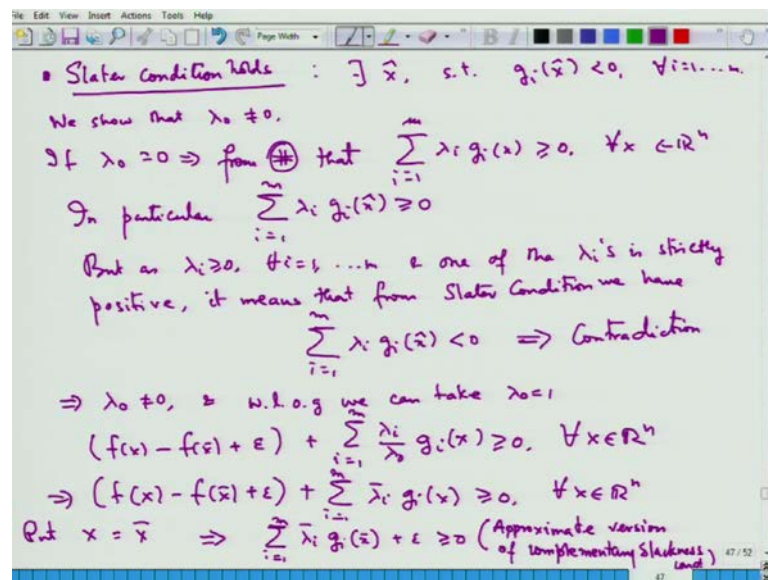 File Edit View Insert Actions Tools Help
Page Width
B I
• Slater condition holds : ∃ x̂, s.t. gᵢ(x̂) < 0, ∀ i=1....m.
We show that λ₀ ≠ 0.
If λ₀ = 0 ⇒ from (#) that ∑_{i=1}^{m} λᵢ gᵢ(x) ≥ 0. ∀x ∈ ℝⁿ
In particular ∑_{i=1}^{m} λᵢ gᵢ(x̂) ≥ 0
But as λᵢ ≥ 0, ∀i=1, ...m & one of the λᵢ's is strictly
positive, it means that from Slater Condition we have
∑_{i=1}^{m} λᵢ gᵢ(x̂) < 0 ⇒ Contradiction
⇒ λ₀ ≠ 0, & w.l.o.g we can take λ₀=1
(f(x) – f(x̄) + ε) + ∑_{i=1}^{m} λᵢ/λ₀ gᵢ(x) ≥ 0, ∀ x ∈ ℝⁿ
⇒ (f(x) – f(x̄) + ε) + ∑_{i=1}^{m} λ̄ᵢ gᵢ(x) ≥ 0, ∀ x ∈ ℝⁿ
Put x = x̄ ⇒ ∑_{i=1}^{m} λ̄ᵢ gᵢ(x̄) + ε ≥ 0 (Approximate version
of complementary slackness cond)
47 / 52
47